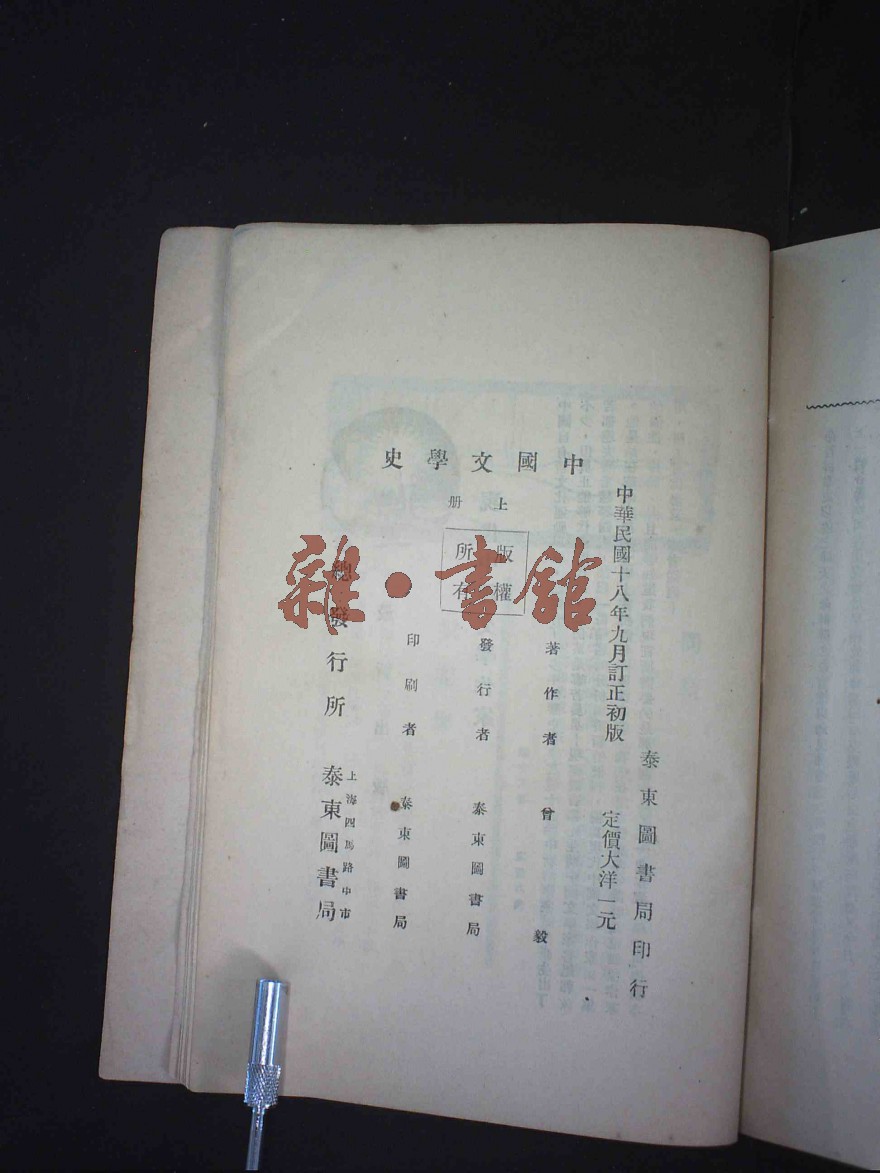 中國文學史
上册
版權所有
中華民國十八年九月訂正初版 定價大洋一元
泰東圖書局印行
著作者 曾毅
發行者 泰東圖書局
印刷者 泰東圖書局
總發行所 上海四馬路中市 泰東圖書局
雜·書舘